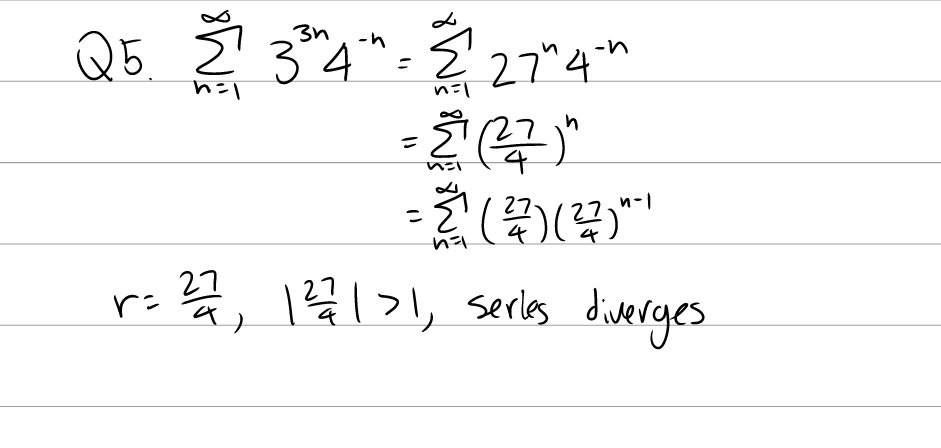 Q5. $\sum_{n=1}^{\infty} 3^{3n} 4^{-n} = \sum_{n=1}^{\infty} 27^n 4^{-n}$
$= \sum_{n=1}^{\infty} \left(\frac{27}{4}\right)^n$
$= \sum_{n=1}^{\infty} \left(\frac{27}{4}\right)\left(\frac{27}{4}\right)^{n-1}$
$r = \frac{27}{4}, \left|\frac{27}{4}\right| > 1,$ series diverges